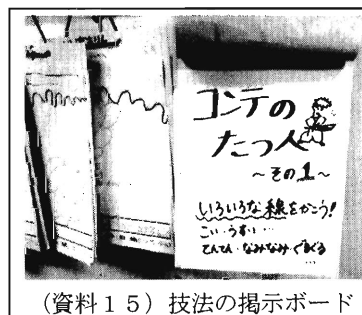 コンテの
たつ人
～その1～
いろいろな線をかこう!
こい・うすい…
てんてん・なみなみ・ぐるぐる
…
(資料15)技法の掲示ボード